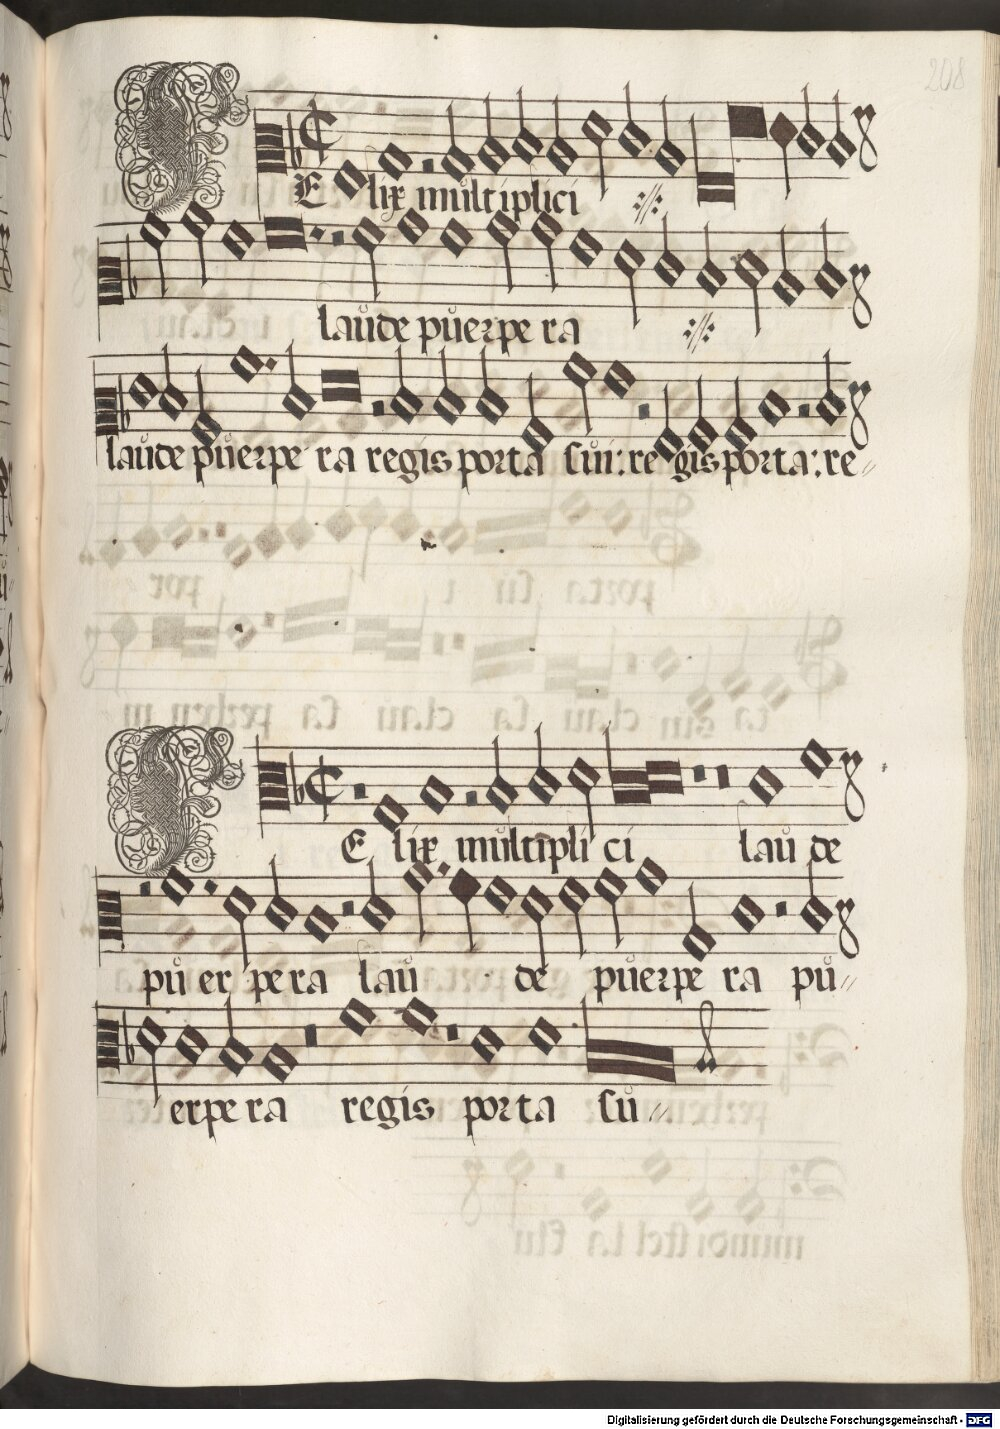 208
FE lix multiplici
laude puerpe ra
laude puerpe ra regis porta sui: re gis porta: re
FE lix multipli ci lau de
pu er pe ra lau de puerpe ra pu
erpe ra regis porta su
Digitalisierung gefördert durch die Deutsche Forschungsgemeinschaft - DFG